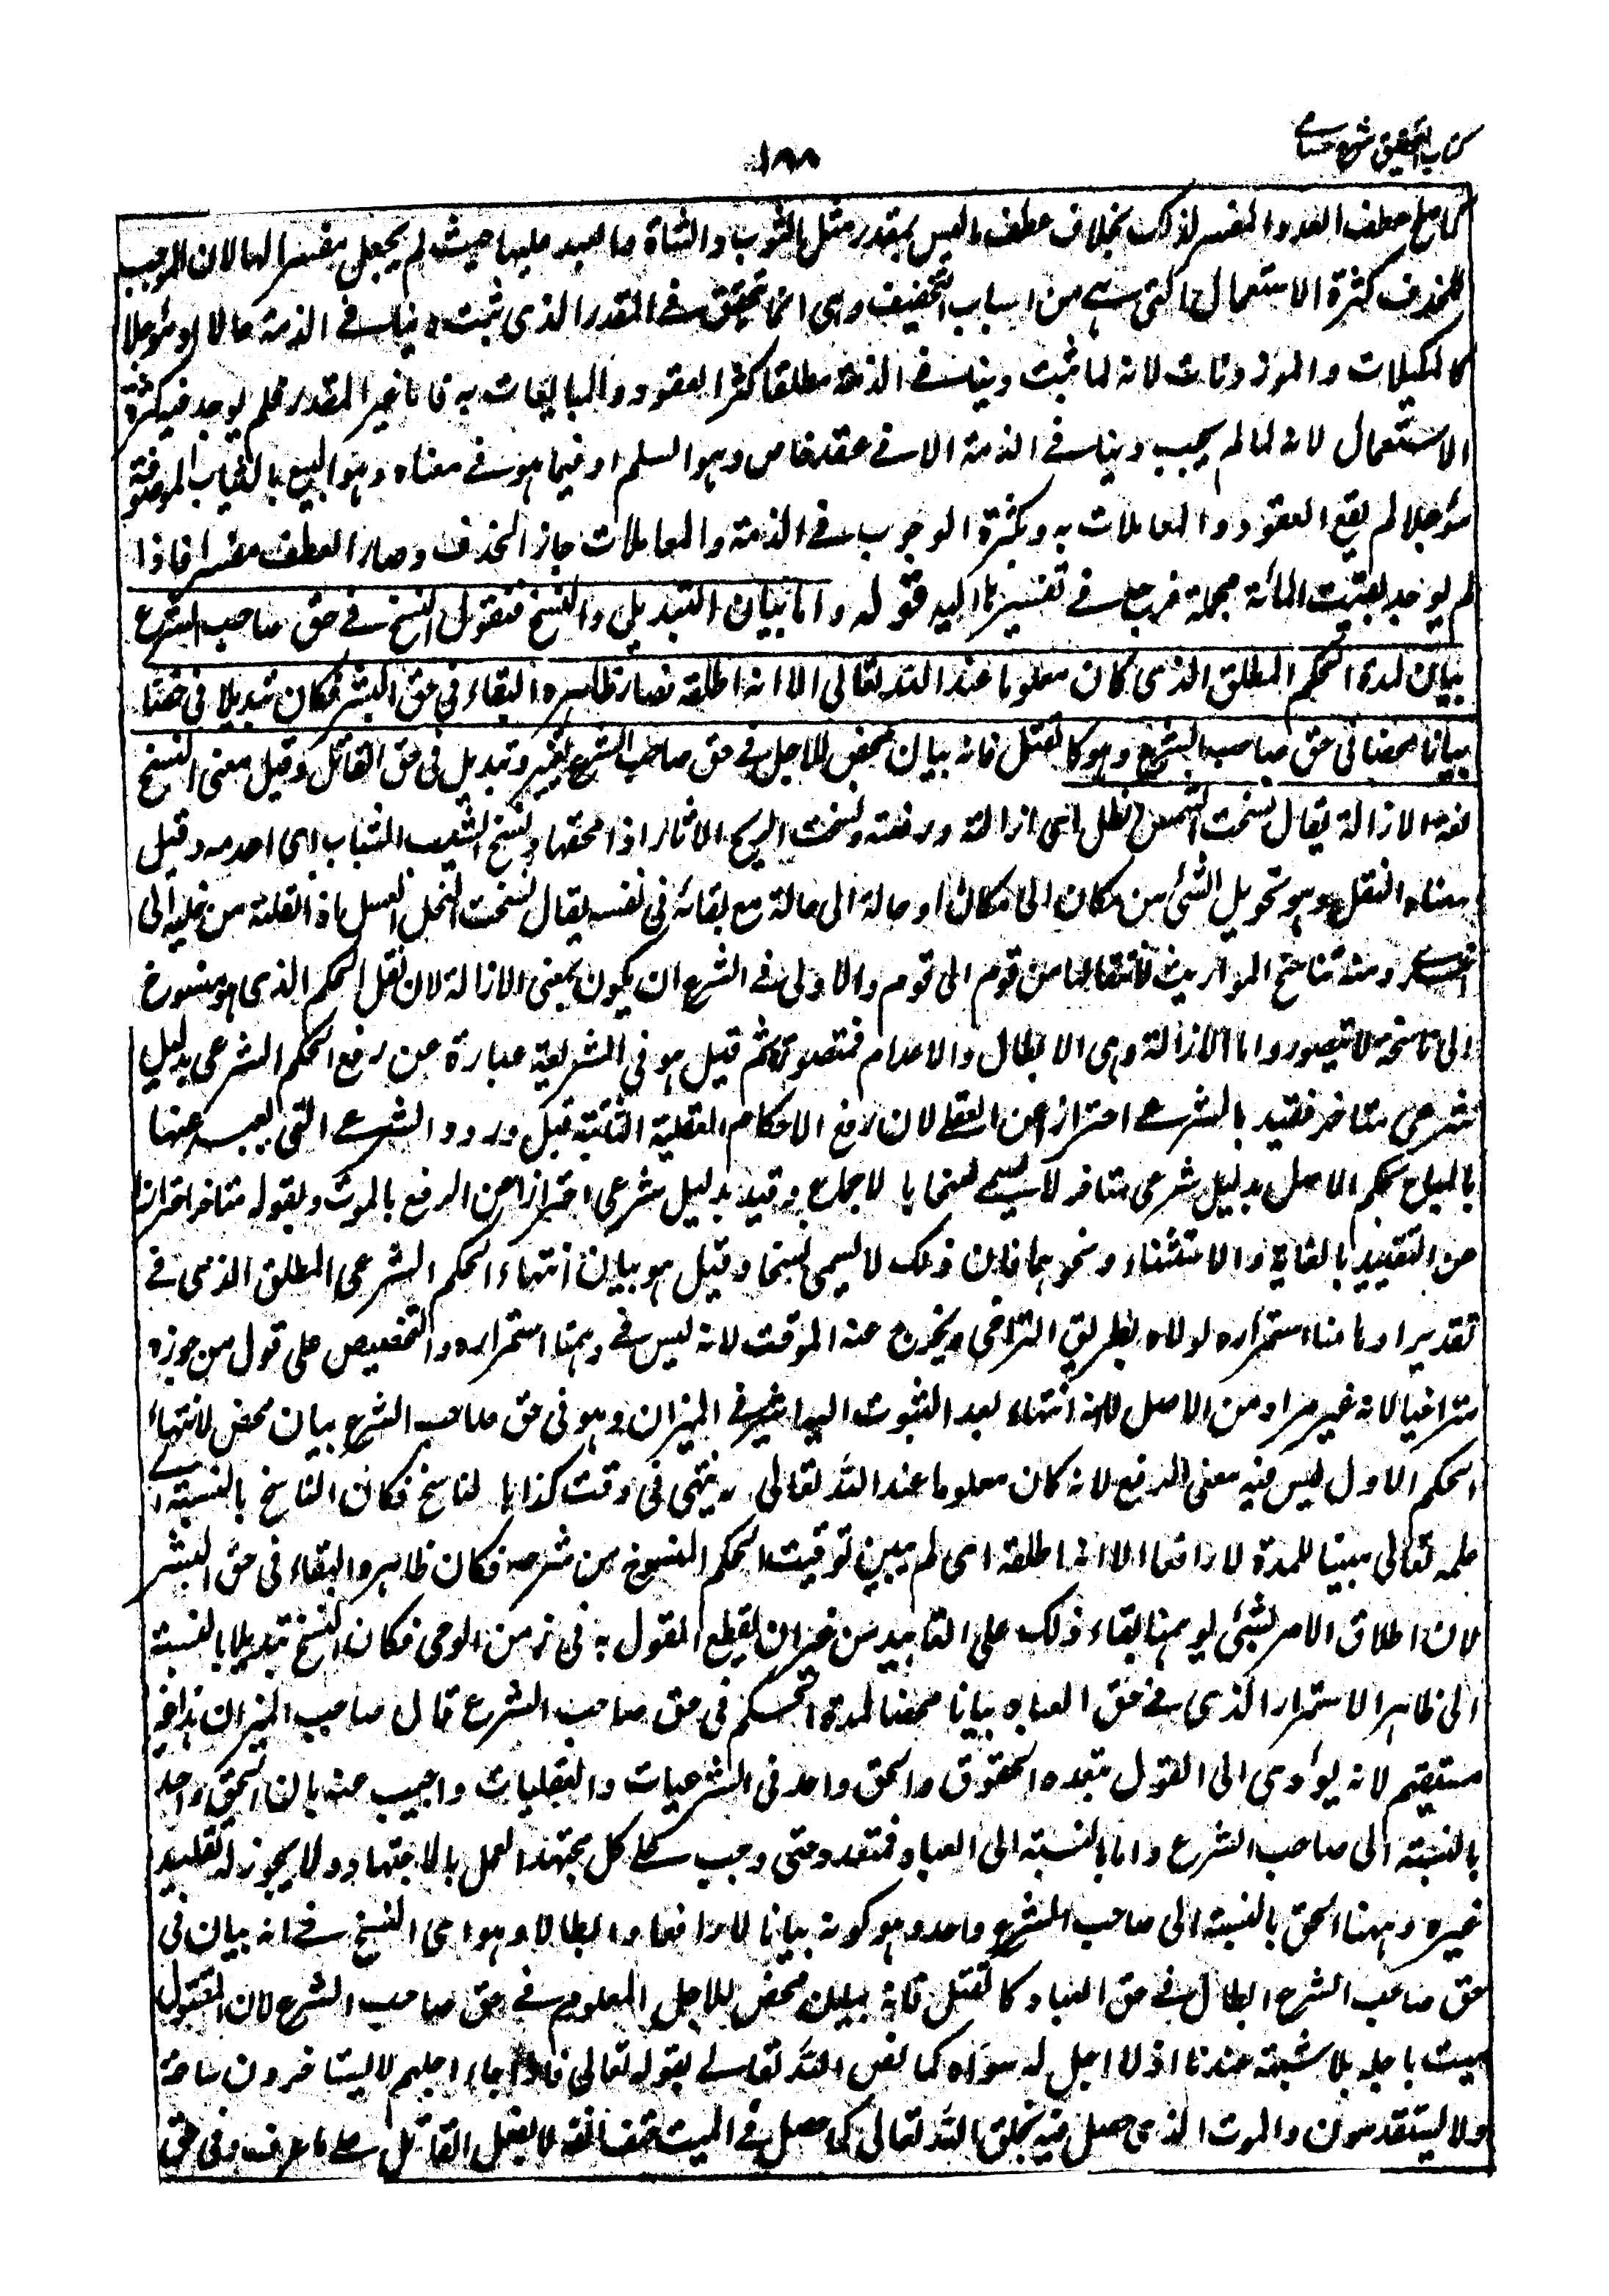 كتاب التحقيق شرح حسامى
١٨٨
كما صلح عطف العدد المفسر لذلك بخلاف عطف ما ليس بمقدر مثل الثوب والشاة والعبد عليها حيث لم يجعل مفسرا لها لان الموجب
للحذف كثرة الاستعمال التى هى من اسباب التخفيف وهى انما تحقق فى المقدر الذى ثبت دينا فى الذمة حالا او مؤجلا
كالمكيلات والموزونات لانه لما ثبت دينا فى الذمة مطلقا كثر العقود والمبايعات به فاما غير المقدر فلم يوجد فيه كثرة
الاستعمال لانه لما لم يجب دينا فى الذمة الا فى عقد خاص وهو السلم او فيما هو فى معناه وهو البيع بالثياب الموصوفة
مؤجلا لم يقع العقود والمعاملات به وبكثرة الوجوب فى الذمة والمعاملات جاز الحذف وصار العطف مفسرا فاذا
لم يوجد بقيت المائة مجملة فرجع فى تفسيرها اليه قوله واما بيان التبديل والنسخ فنقول النسخ فى حق صاحب الشرع
بيان لمدة الحكم المطلق الذى كان معلوما عند الله تعالى الا انه اطلقه فصار ظاهره البقاء فى حق البشر فكان تبديلا فى حقنا
بيانا محضا فى حق صاحب الشرع وهو كالقتل فانه بيان محض للاجل فى حق صاحب الشرع تغيير وتبديل فى حق القاتل وقيل معنى النسخ
لغة الازالة يقال نسخت الشمس الظل اى ازالته ورفعته ونسخت الريح الآثار اذا محقتها ونسخ الشيب الشباب اى اعدمه وقيل
معناه النقل وهو تحويل الشئ من مكان الى مكان او حالة الى حالة مع بقائه فى نفسه يقال نسخت النحل العسل اذا نقلته من خلية الى
اخرى ومنه تناسخ المواريث لانتقالها من قوم الى قوم والاولى فى الشرع ان يكون بمعنى الازالة لان نقل الحكم الذى هو منسوخ
الى ناسخه لا يتصور واما الازالة وهى الابطال والاعدام فمتصورة ثم قيل هو فى الشريعة عبارة عن رفع الحكم الشرعى بدليل
شرعى متاخر فقيد بالشرعى احترازا عن العقلى لان رفع الاحكام العقلية الثابتة قبل ورود الشرع التى يعبر عنها
بالمباح بحكم الاصل بدليل شرعى متاخر لا يسمى نسخا بالاجماع وقيد بدليل شرعى احترازا عن الرفع بالموت وبقوله متاخر احترازا
عن التقييد بالغاية والاستثناء ونحوهما فان ذلك لا يسمى نسخا وقيل هو بيان انتهاء الحكم الشرعى المطلق الذى فى
تقدير اوهامنا استمراره لولاه بطريق التراخى ويخرج عنه الموقت لانه ليس فى وهمنا استمراره والتخصيص على قول من جوزه
متراخيا لانه غير مراد من الاصل لا انه انتهاء بعد الثبوت اليه اشير فى الميزان وهو فى حق صاحب الشرع بيان محض لانتهاء
الحكم الاول ليس فيه معنى الرفع لانه كان معلوما عند الله تعالى انه ينتهى فى وقت كذا بالناسخ فكان الناسخ بالنسبة الى
علمه تعالى مبينا للمدة لا رافعا الا انه اطلقه اى لم يبين توقيت الحكم المنسوخ حين شرعه فكان ظاهره البقاء فى حق البشر
لان اطلاق الامر بشئ يوهمنا بقاء ذلك على التابيد من غير ان نقطع القول به فى زمن الوحى فكان النسخ تبديلا بالنسبة
الى ظاهر الاستمرار الذى فى حق العباد بيانا محضا لمدة الحكم فى حق صاحب الشرع قال صاحب الميزان هذا غير
مستقيم لانه يؤدى الى القول بتعدد الحقوق والحق واحد فى الشرعيات والعقليات واجيب عنه بان الحق واحد
بالنسبة الى صاحب الشرع واما بالنسبة الى العباد فمتعدد حتى وجب على كل مجتهد العمل بالاجتهاد ولا يجوز له تقليد
غيره وههنا الحق بالنسبة الى صاحب الشرع واحد وهو كونه بيانا لا رافعا وابطالا وهو اى النسخ فى انه بيان فى
حق صاحب الشرع ابطال فى حق العباد كالقتل فانه بيان محض للاجل المعلوم فى حق صاحب الشرع لان المقتول
ميت باجله بلا شبهة عندنا اذ لا اجل له سواه كما نص الله تعالى بقوله تعالى فاذا جاء اجلهم لا يستاخرون ساعة
ولا يستقدمون والموت الذى حصل فيه بخلق الله تعالى كما حصل فى الميت حتف انفه لا بفعل القاتل على ما عرف وفى حق